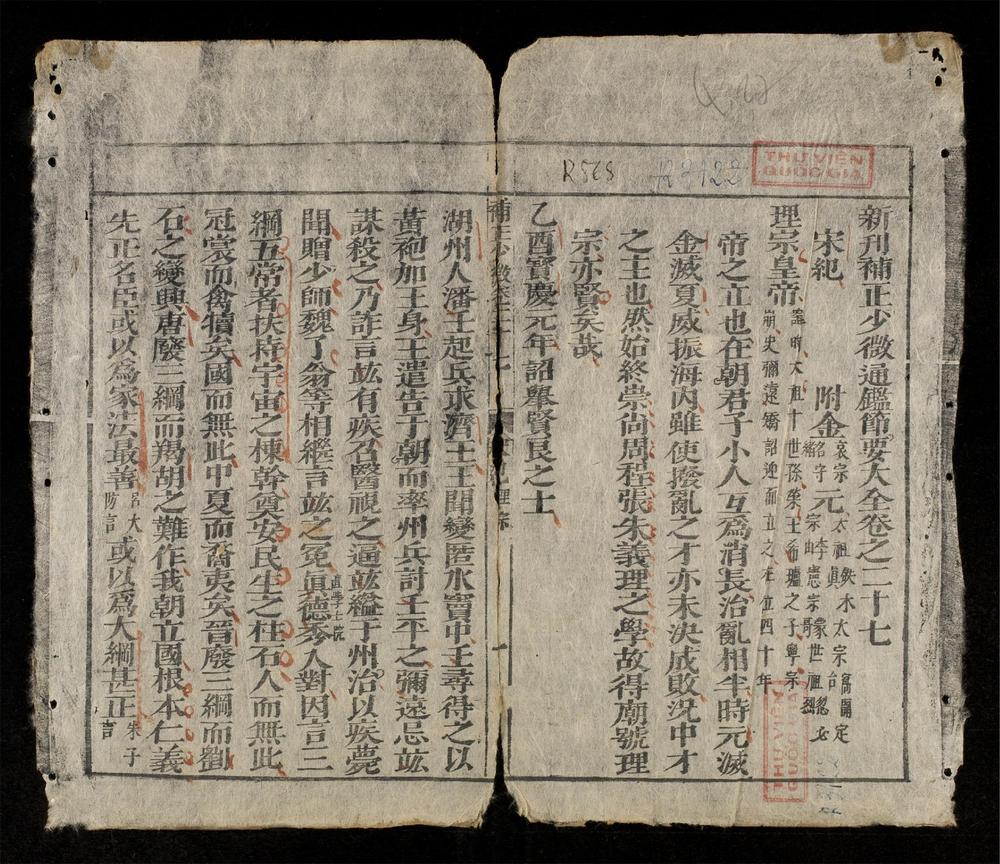 R568
R2122
THƯ VIỆN
QUỐC GIA
新刊補正少微通鑑節要大全卷之二十七
宋紀 附金 哀宗名守緒 元 太祖鉄木真 太宗窩闊台 定宗 憲宗蒙哥 世祖忽必
理宗皇帝 時太祖十世孫榮王希瓐之子寧宗崩史彌遠矯詔迎而立之在位四十年
帝之立也在朝君子小人互爲消長治亂相半時元滅
金滅夏威振海內雖使撥亂之才亦未決成敗況中才
之主也然始終崇尚周程張朱義理之學故得廟號理
宗亦賢矣哉
乙酉寶慶元年詔舉賢良之士
補正少微卷二十七 宋紀理宗 一
湖州人潘壬起兵求濟王王聞變匿水竇中壬尋得之以
黃袍加王身王遣告于朝而率州兵討壬平之彌遠忌竑
謀殺之乃詐言竑有疾召醫視之逼竑縊于州治以疾薨
聞贈少師魏了翁等相繼言竑之冤眞德秀 直學士院 入對因言三
綱五常者扶持宇宙之棟幹奠安民生之柱石人而無此
冠裳而禽犢矣國而無此中夏而裔夷矣晉廢三綱而劉
石之變興唐廢三綱而羯胡之難作我朝立國根本仁義
先正名臣或以爲家法最善 呂大防言 或以爲大綱甚正 朱子言
THƯ VIỆN
QUỐC GIA